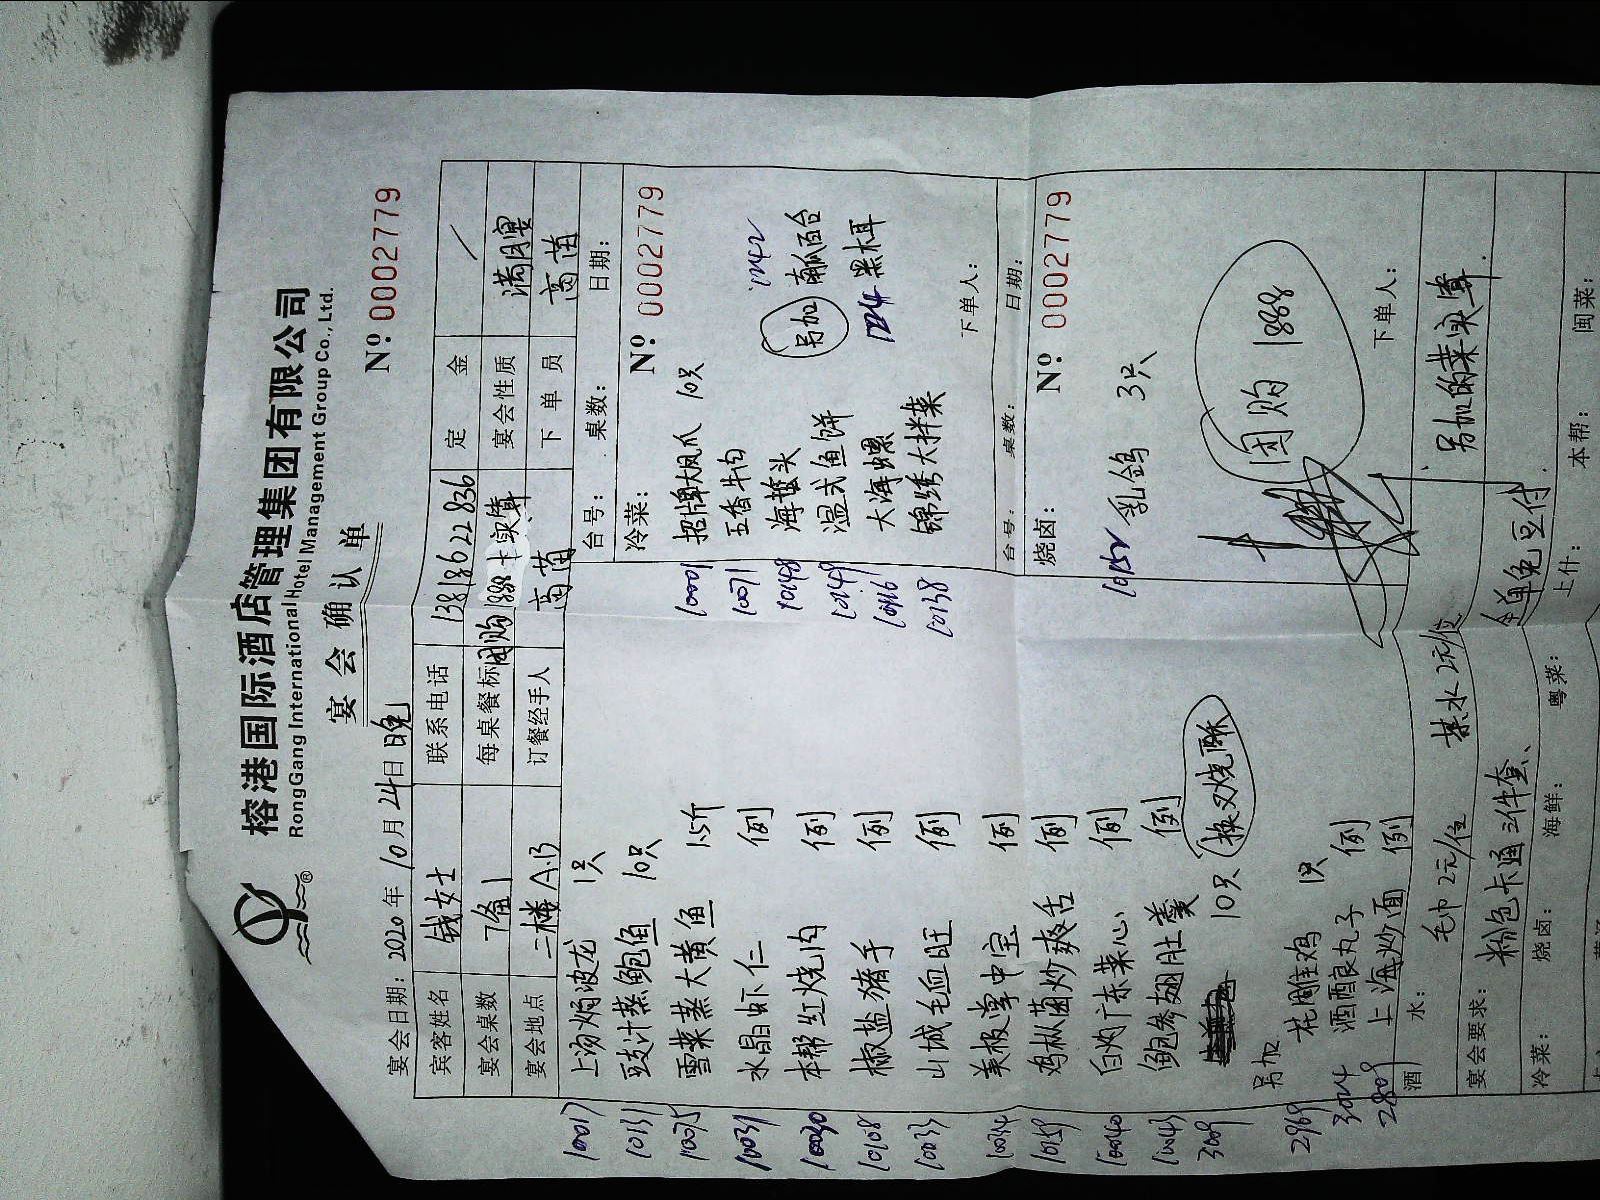 榕港国际酒店管理集团有限公司
RongGang International Hotel Management Group Co., Ltd.
宴会确认单
宴会日期：2020年10月24日晚 Nº 0002779
宾客姓名 钱女士 联系电话 13818622836 定金 /
宴会桌数 7备1 每桌餐标 团购1888卡实算 宴会性质 满月宴
宴会地点 二楼A.B 订餐经手人 高茵 下单员 高茵
台号： 桌数： 日期：
冷菜： Nº 0002779
10001 招牌大凤爪 10只
10071 五香牛肉
10148 海蜇头
10149 温式鱼饼
10116 大海螺
10138 锦绣大拌菜
另加 南瓜百合
黑木耳
下单人：
10017 上海焗波龙 1只
10131 豆豉汁蒸鲍鱼 10只
10075 雪菜蒸大黄鱼 1.5斤
10031 水晶虾仁 例
10030 本帮红烧肉 例
10108 椒盐猪手 例
10033 山城毛血旺 例
10034 美极掌中宝 例
10159 鸡枞菌炒爽舌 例
10040 白灼广东菜心 例
10043 鲍参翅肚羹 例
3009 10只 换叉烧酥
另加
2969 花雕鸡 1只
3014 酒酿丸子 例
2809 上海炒面 例
台号： 桌数： 日期：
烧卤： Nº 0002779
10152 乳鸽 3只
团购1888
下单人：
酒水： 毛巾2元/位 茶水2元/位 另加的菜实算.
宴会要求： 粉色卡通三件套、 全单免豆付.
冷菜： 烧卤： 海鲜： 粤菜： 上什： 本帮： 闽菜：